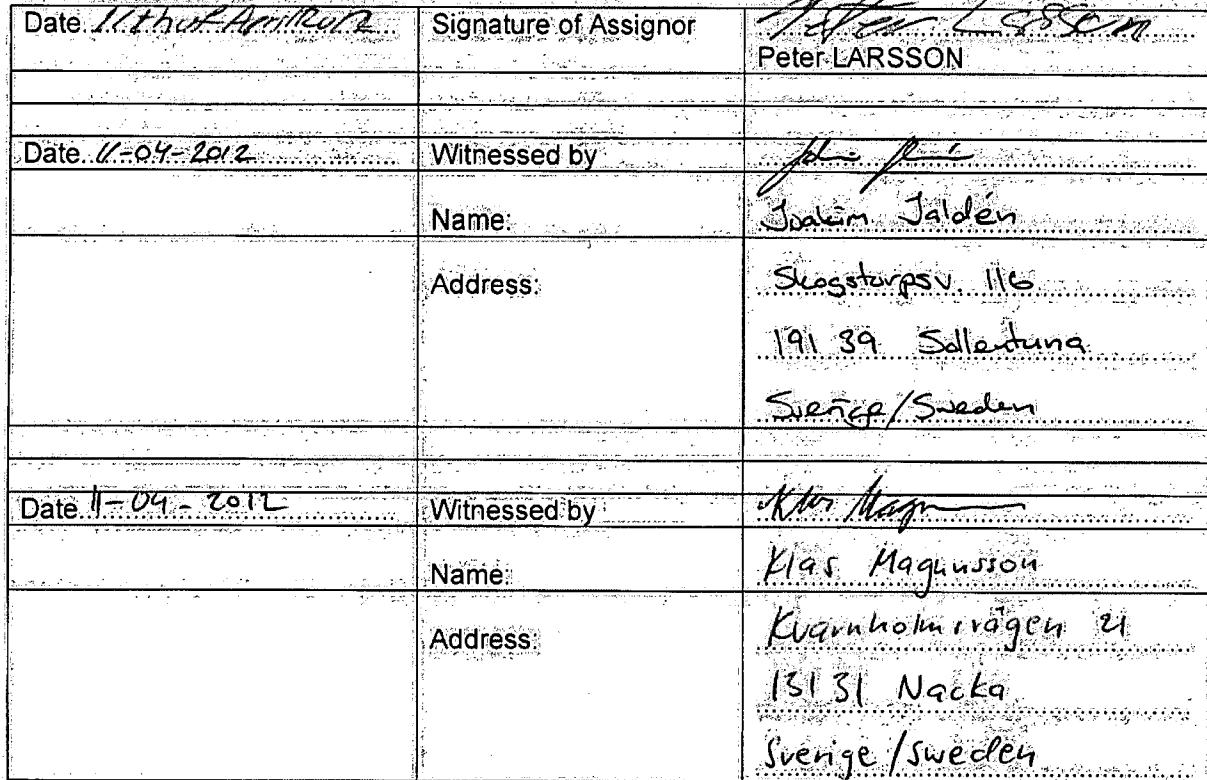 Date 11th of April 2012 Signature of Assignor Peter Larsson
Peter LARSSON
Date 11-04-2012 Witnessed by
Name: Joakim Jaldén
Address: Skogstorpsv. 116
191 39 Sollentuna
Sverige/Sweden
Date 11-04-2012 Witnessed by Klas Magn
Name: Klas Magnusson
Address: Kvarnholmsvägen 21
131 31 Nacka
Sverige/Sweden